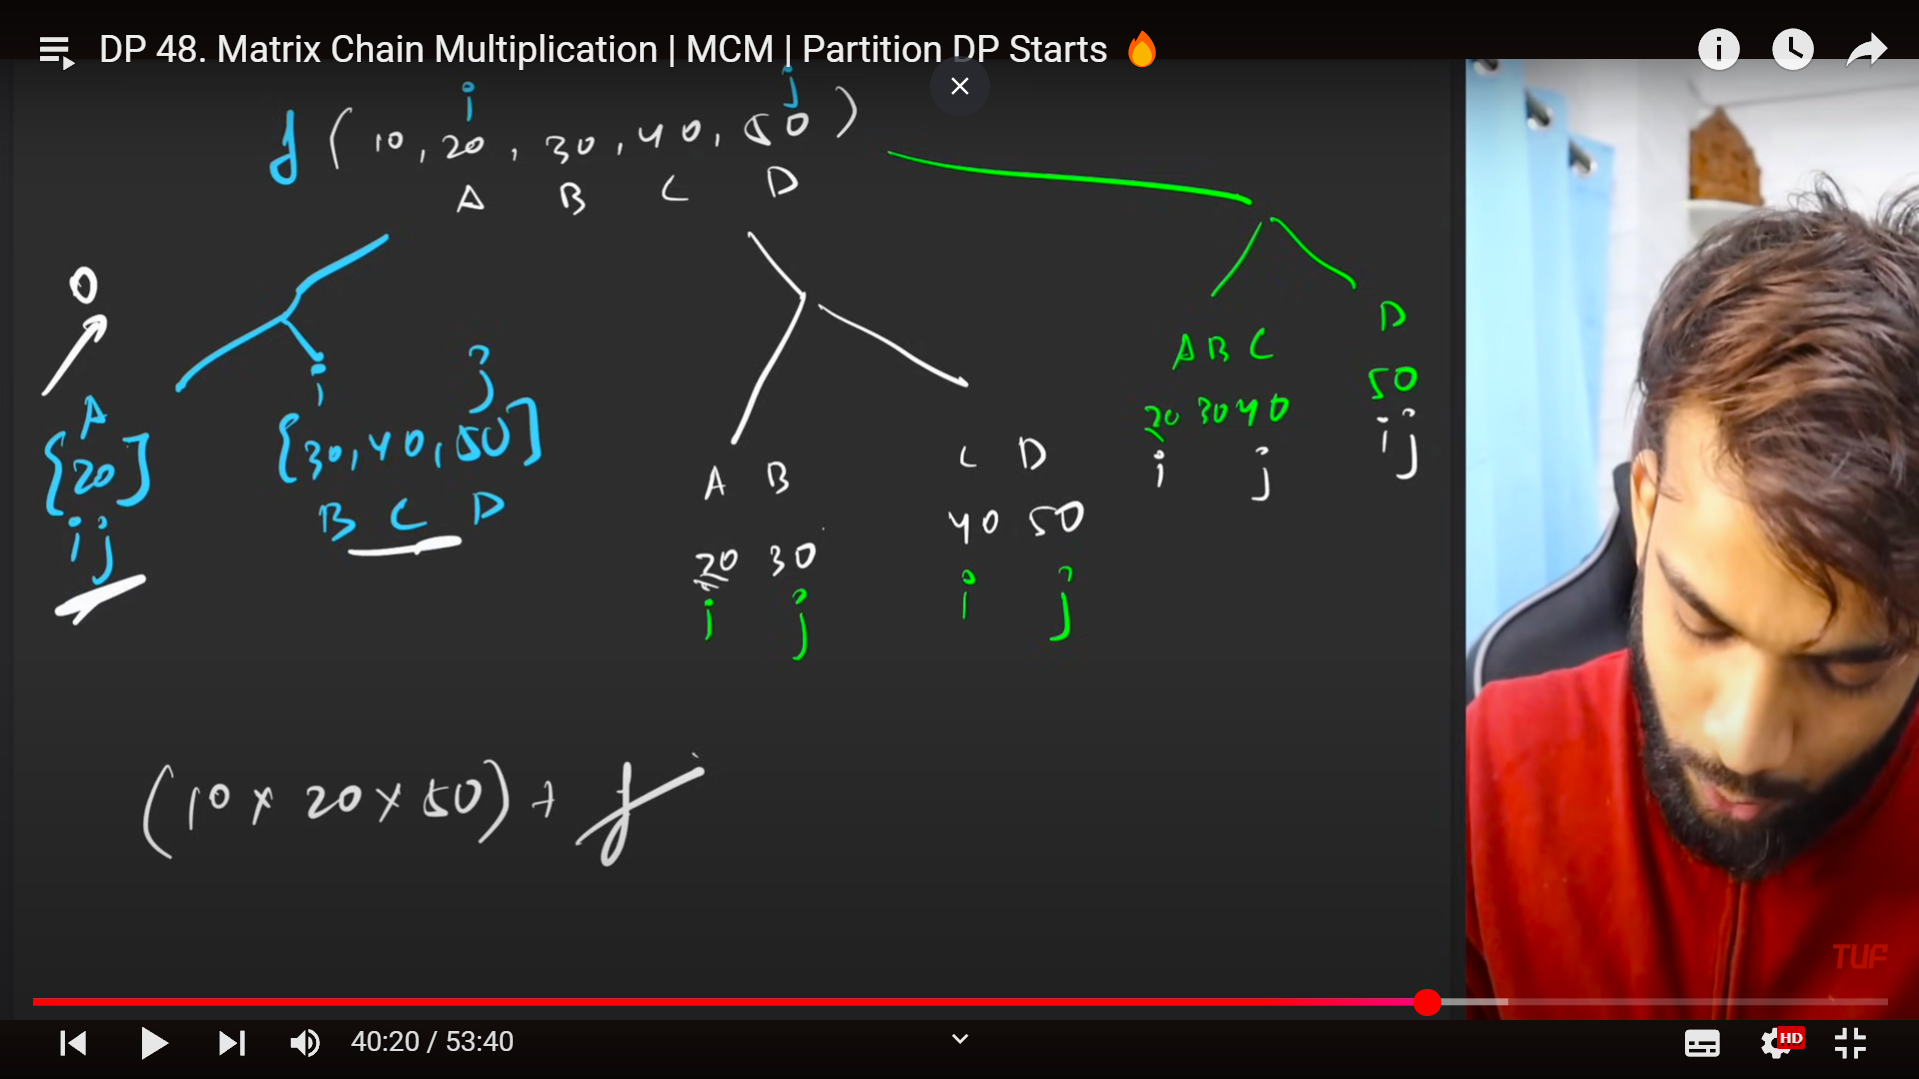 DP 48. Matrix Chain Multiplication | MCM | Partition DP Starts 🔥
i j
f ( 10, 20, 30, 40, 50 )
A B C D
0
A
{20}
i j
i j
{30, 40, 50}
B C D
A B
20 30
i j
C D
40 50
i j
A B C
20 30 40
i j
D
50
i j
(10 x 20 x 50) + f
TUF
40:20 / 53:40
HD